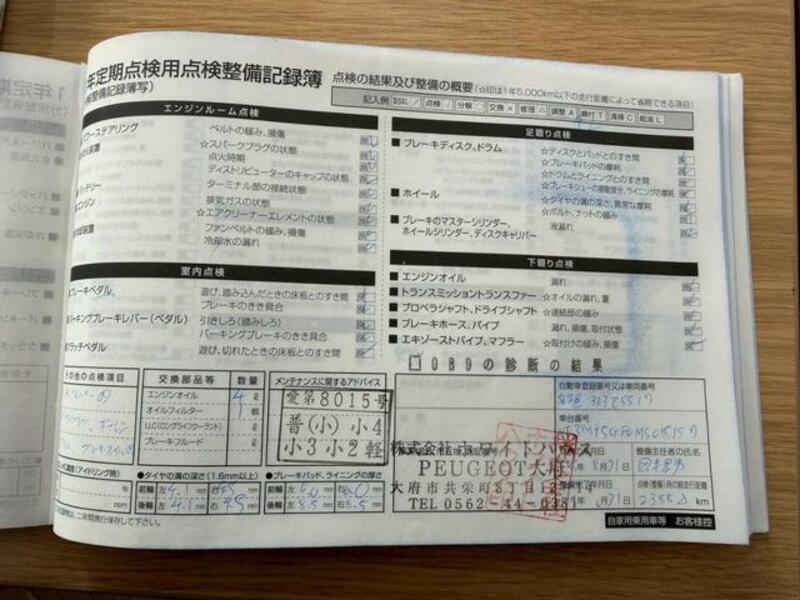 年定期点検用点検整備記録簿
整備記録簿写)
点検の結果及び整備の概要 (☆印は1年5,000km以下の走行距離によって省略できる項目)
記入例 点検 分解 ○ 交換 × 修理 △ 調整 A 締付 T 清掃 C 給油 L
エンジンルーム点検
ワーステアリング ベルトの緩み、損傷
火装置 ☆スパークプラグの状態
点火時期
ディストリビューターのキャップの状態
ッテリー ターミナル部の接続状態
エンジン 排気ガスの状態
☆エアクリーナーエレメントの状態
却装置 ファンベルトの緩み、損傷
冷却水の漏れ
室内点検
ブレーキペダル 遊び、踏み込んだときの床板とのすき間
ブレーキのきき具合
パーキングブレーキレバー (ペダル) 引きしろ (踏みしろ)
パーキングブレーキのきき具合
クラッチペダル 遊び、切れたときの床板とのすき間
足廻り点検
■ ブレーキディスク、ドラム ☆ディスクとパッドとのすき間
☆ブレーキパッドの摩耗
☆ドラムとライニングとのすき間
☆ブレーキシューの摺動部分、ライニングの摩耗
■ ホイール ☆タイヤの溝の深さ、異常な摩耗
☆ボルト、ナットの緩み
■ ブレーキのマスターシリンダー、
ホイールシリンダー、ディスクキャリパー 液漏れ
下廻り点検
■ エンジンオイル 漏れ
■ トランスミッショントランスファー ☆オイルの漏れ、量
■ プロペラシャフト、ドライブシャフト ☆連結部の緩み
■ ブレーキホース、パイプ 漏れ、損傷、取付状態
■ エキゾーストパイプ、マフラー ☆取付の緩み、損傷
□OBDの診断の結果
その他の点検項目
交換部品等 数量
エンジンオイル 4 ℓ
オイルフィルター 1 個
LLC(ロングライフクーラント) ℓ
ブレーキフルード ℓ
メンテナンスに関するアドバイス
愛第8015号
普(小) 小4
小3 小2 軽
自動車登録番号又は車両番号
車台番号
株式会社ホワイトハウス
PEUGEOT大府
大府市共栄町8丁目12
TEL 0562-44-0381
整備主任者の氏名
8月31日
点検(整備)時の総走行距離
km
(アイドリング時)
ppm
●タイヤの溝の深さ (1.6mm以上)
前輪 左 4.1 mm 右 mm
後輪 左 4.1 mm 右 4.5 mm
●ブレーキパッド、ライニングの厚さ
前輪 左 mm 右 mm
後輪 左 8.5 mm 右 5.5 mm
二年間携行保存して下さい。
自家用乗用車等 お客様控